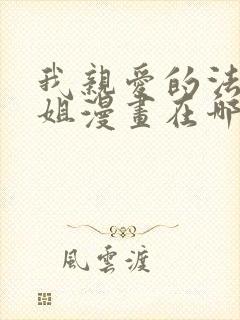 我親愛的法
姐漫畫在哪
風雲渡